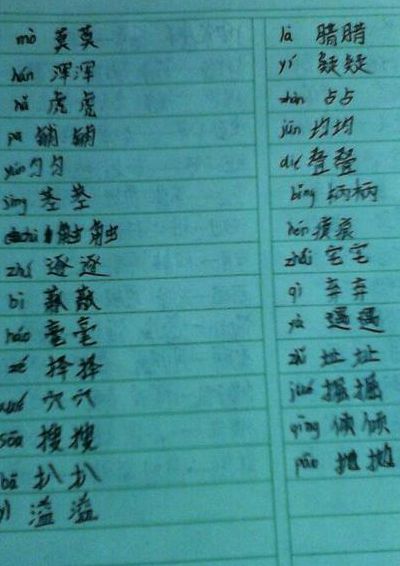 mò 莫莫
hún 浑浑
hǔ 虎虎
pū 铺铺
yún 匀匀
jīng 茎茎
chù 触触
zhú 逐逐
bì 蔽蔽
háo 毫毫
zé 择择
xué 穴穴
sōu 搜搜
bā 扒扒
yì 溢溢
là 腊腊
yí 疑疑
zhàn 占占
jūn 均均
dié 叠叠
bǐng 柄柄
hén 痕痕
zhái 宅宅
qì 弃弃
yù 遇遇
zhǐ 址址
jué 掘掘
qīng 倾倾
pāo 抛抛